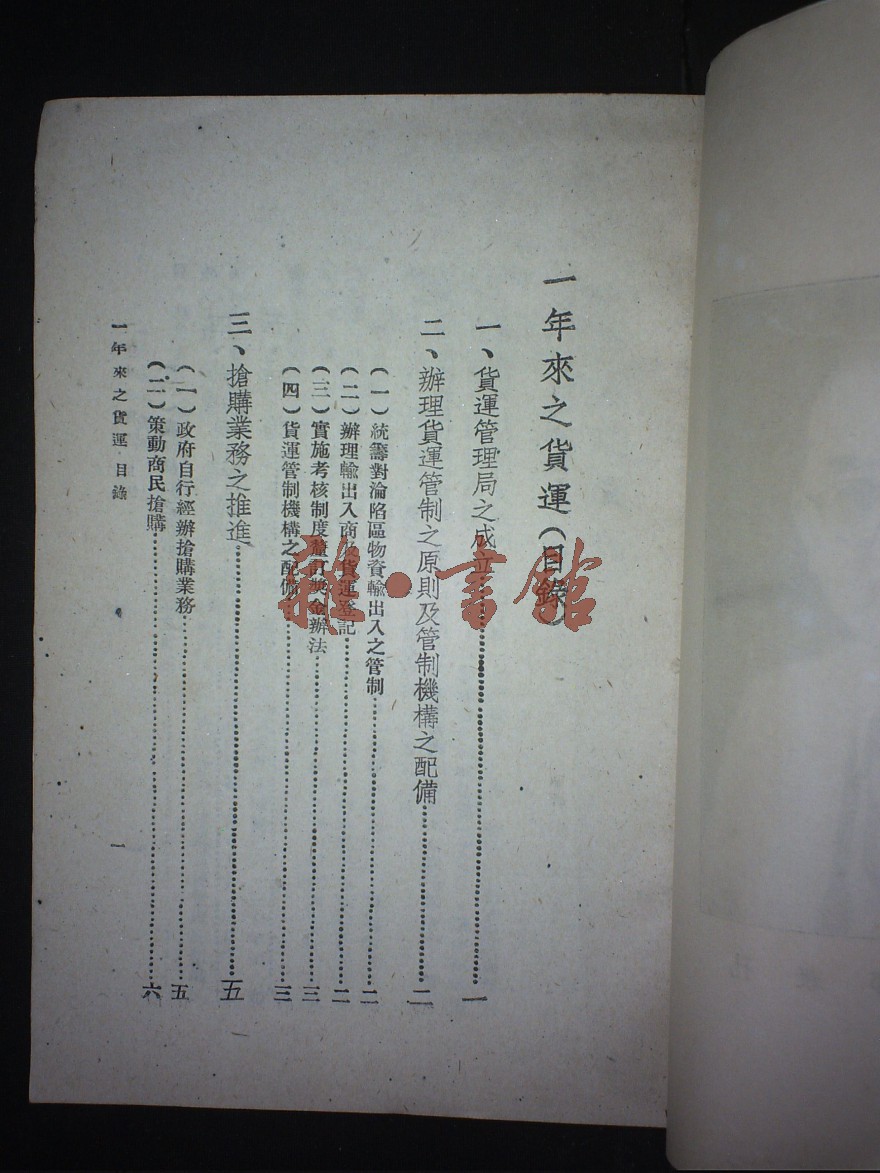 一年來之貨運（目錄）
一、貨運管理局之成立……一
二、辦理貨運管制之原則及管制機構之配備……二
（一）統籌對淪陷區物資輸出入之管制……二
（二）辦理輸出入商及貨運登記……二
（三）實施考核制度釐訂獎金辦法……三
（四）貨運管制機構之配備……三
三、搶購業務之推進……五
（一）政府自行經辦搶購業務……五
（二）策動商民搶購……六
一年來之貨運 目錄
一
雜·書館